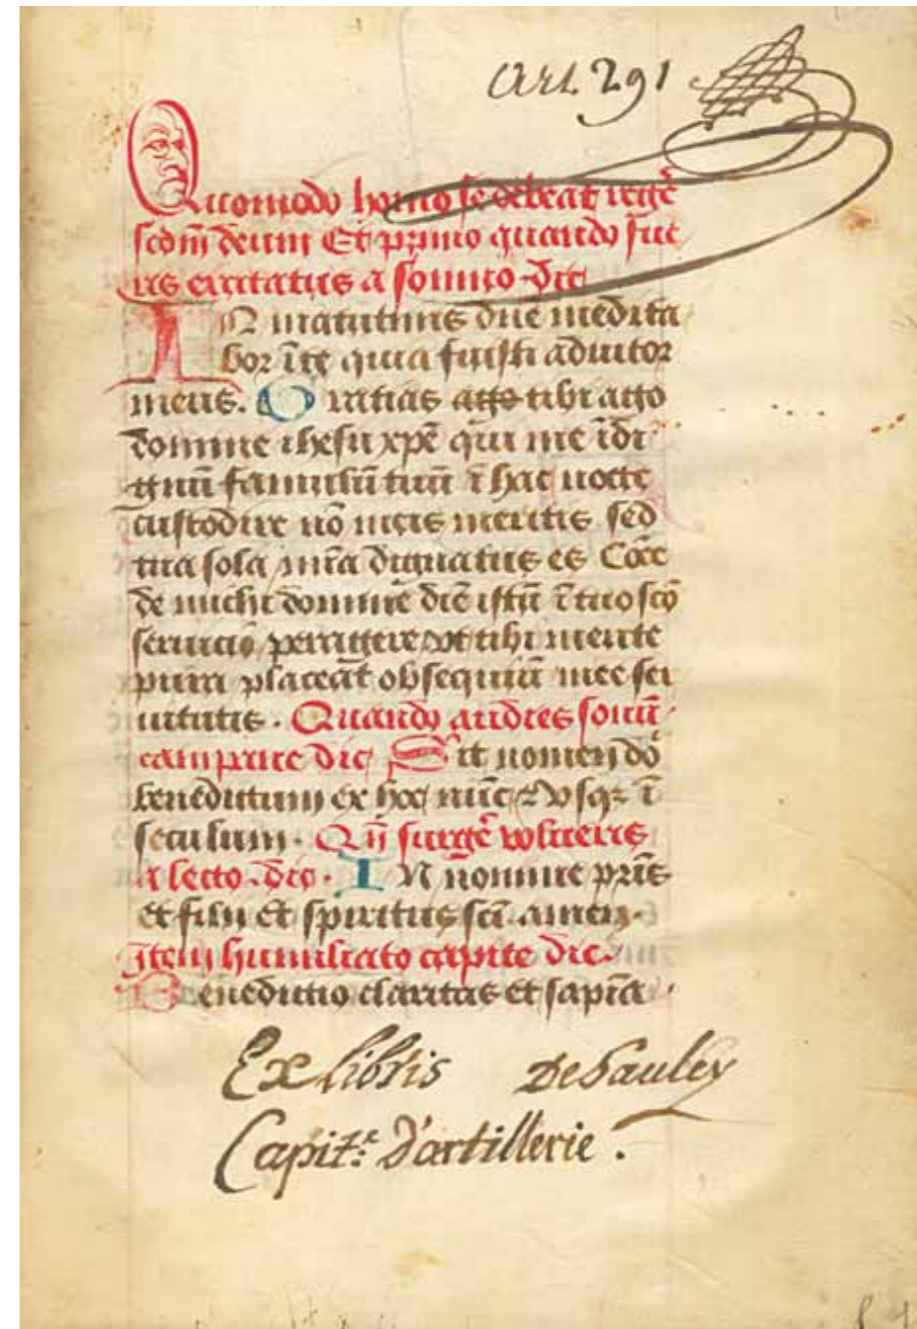 Art. 291
Quomodo homo se debeat regẽ
scdm̃ deum Et primo quando fue
ris excitatus a somno dic
IN matutinis dñe medita
bor ĩ te quia fuisti adiutor
meus. Gratias ago tibi ago
domine ihesu xp̃e qui me ĩdi
gnũ famulũ tuũ ĩ hac nocte
custodire nõ meis meritis sed
tua sola mĩa dignatus es Cõce
de michi domine diẽ istũ ĩ tuo scõ
seruicio peragere vt tibi mente
pura placeãt obsequiũ mee ser
uitutis. Quando audies sonũ
campane dic Sit nomen dõ
benedictum ex hoc nũc & vsqz ĩ
seculum. Qñ surgẽ volueris
a lecto. dic. IN nomine pr̃is
et filii et spiritus sc̃i amen.
Item humiliato capite dic.
Benedictio claritas et sapĩa
Ex libris DeSauley
Capit.e d'artillerie.